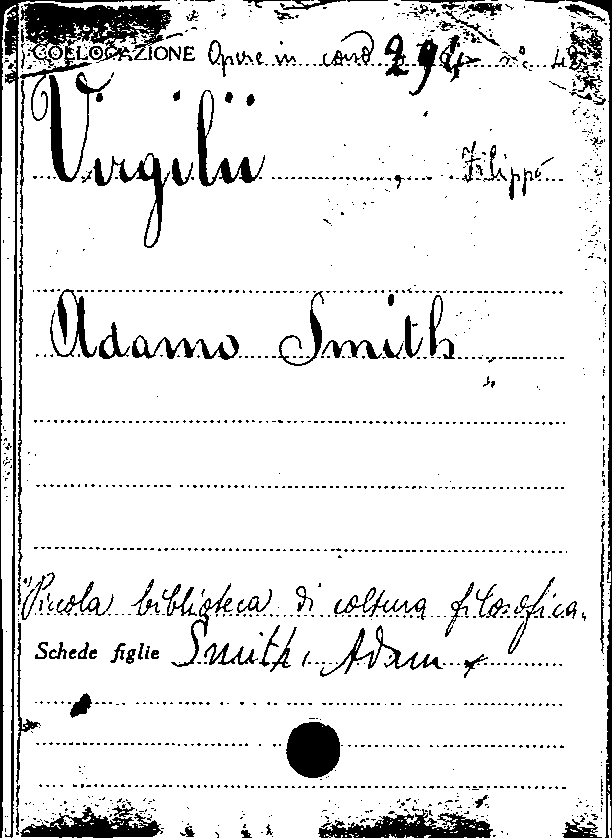 COLLOCAZIONE Opere in cond 294 n: 42
Virgilii , Filippo
Adamo Smith
"Piccola biblioteca di coltura filosofica.
Schede figlie Smith, Adam